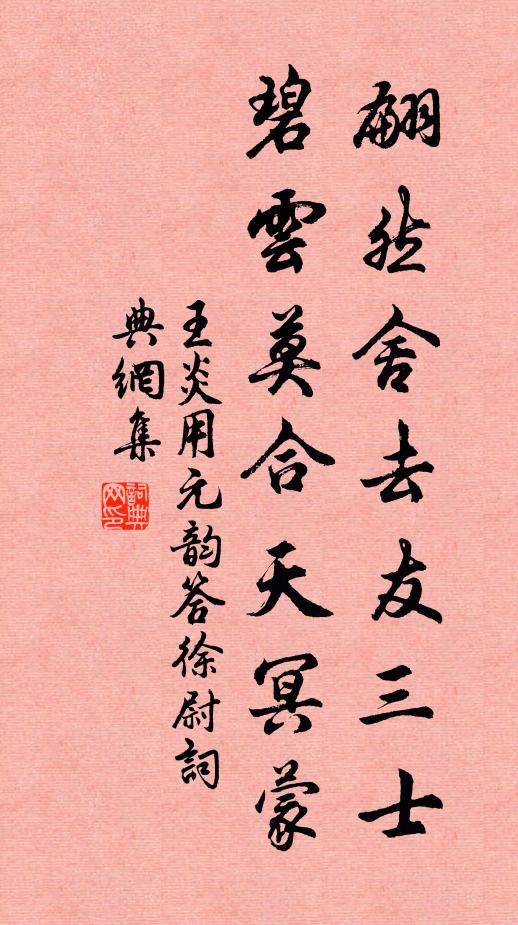 翩然舍去友三士
碧雲莫合天冥蒙
王炎用元韵答徐尉詞
典網集
詞典網印